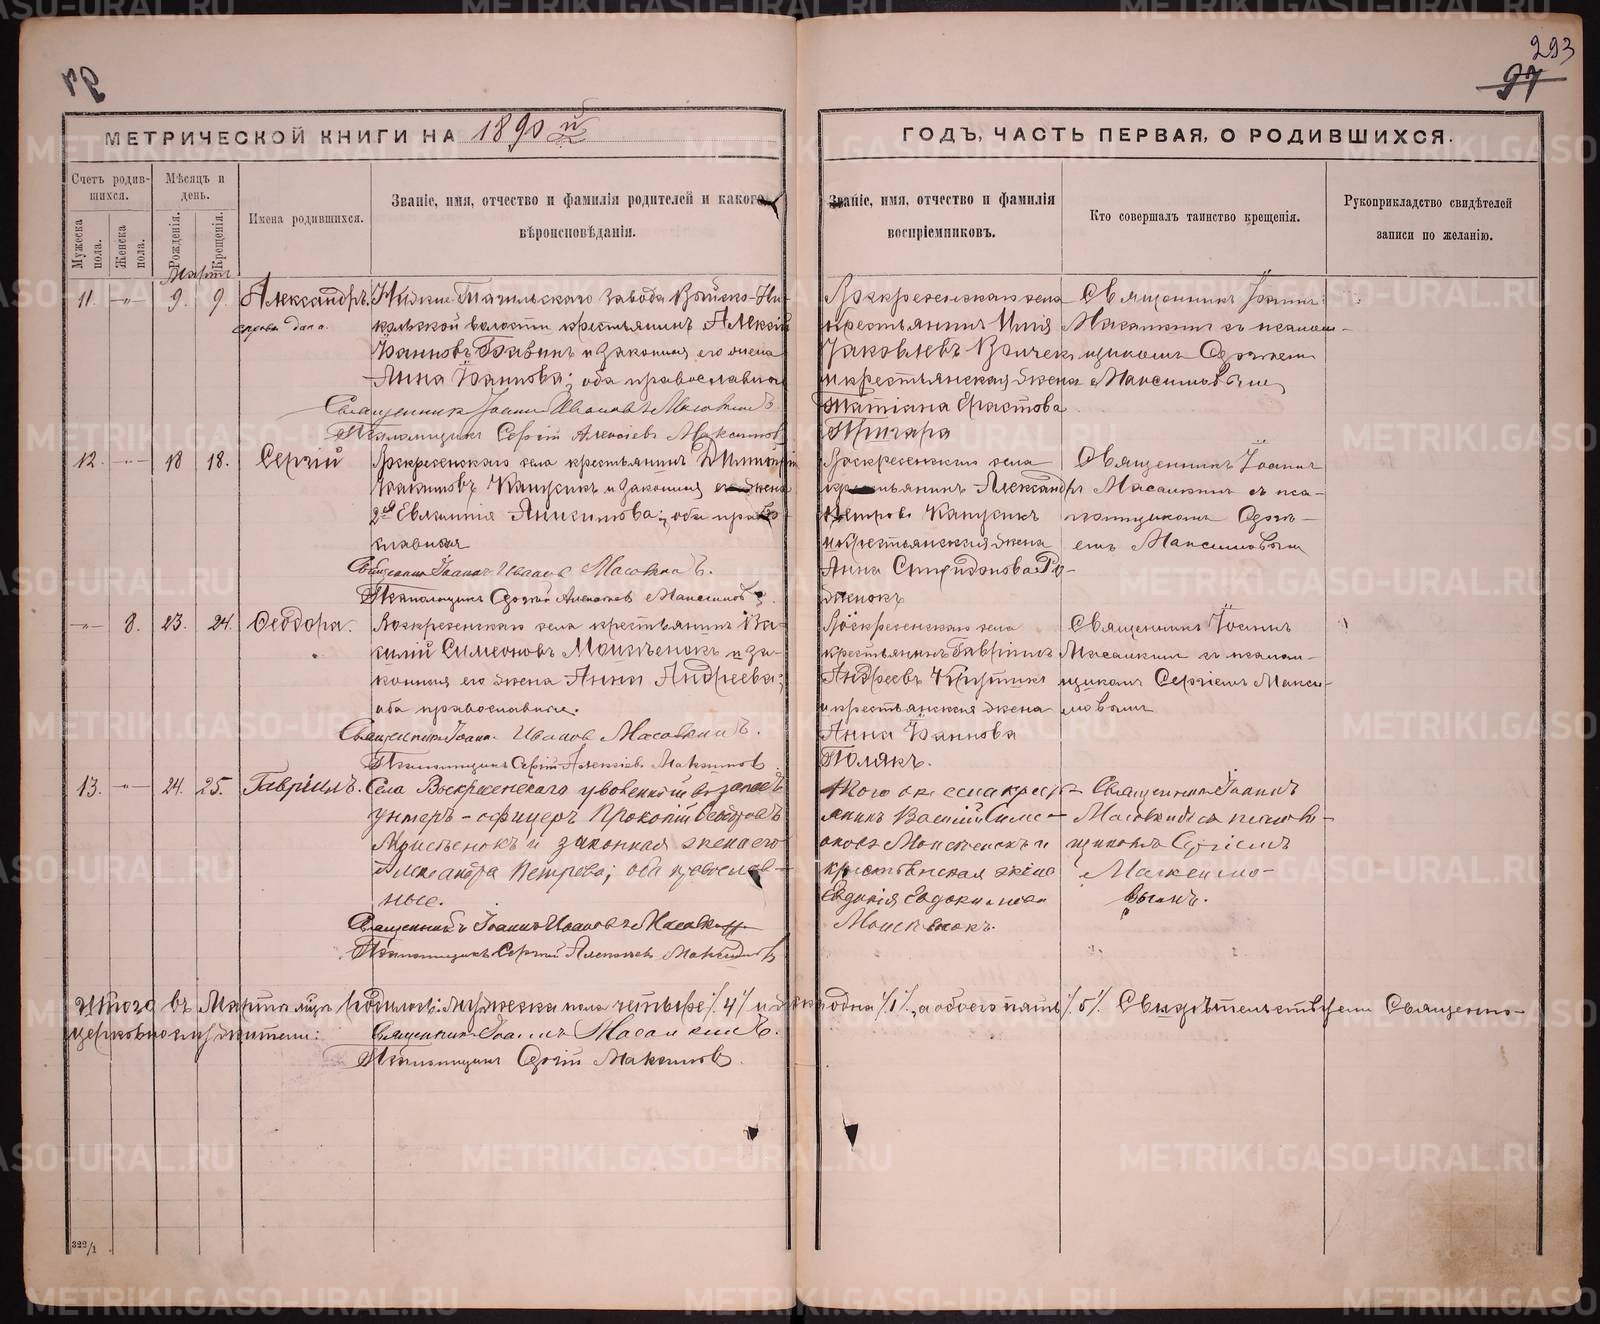 293
97
МЕТРИЧЕСКОЙ КНИГИ НА 1890 й
ГОДЪ, ЧАСТЬ ПЕРВАЯ, О РОДИВШИХСЯ.
Счетъ родив-
шихся.
Мужеска
пола.
Женска
пола.
Мѣсяцъ и
день.
Рожденія.
Крещенія.
Имена родившихся.
Званіе, имя, отчество и фамилія родителей и какого
вѣроисповѣданія.
Званіе, имя, отчество и фамилія
воспріемниковъ.
Кто совершалъ таинство крещенія.
Рукоприкладство свидѣтелей
записи по желанію.
Мартъ
11. -"- 9. 9. Александръ
Нижне-Тагильскаго завода Выйско-Ни-
кольской волости крестьянинъ Алексѣй
Іоанновъ и законная его жена
Анна Іоаннова; оба православные
Священникъ Іоаннъ Ивановъ
Псаломщикъ Сергій Алексіевъ Максимовъ
Воскресенскаго села
крестьянинъ Илія
Іаковлевъ
и крестьянская жена
Татіана Ерастова
Священникъ Іоаннъ
съ псалом-
щикомъ Сергіемъ
Максимовымъ
12. -"- 18 18. Сергій
Воскресенскаго села крестьянинъ Димитрій
и законная его жена
2го Евлампія Анисимова; оба право-
славные
Священникъ Іоаннъ Ивановъ
Псаломщикъ Сергій Алексіевъ Максимовъ
Воскресенскаго села
крестьянинъ Александръ
Петровъ
и крестьянская жена
Анна Спиридонова
Священникъ Іоаннъ
съ пса-
ломщикомъ Серги-
емъ Максимовымъ
-"- 8. 23. 24. Ѳеодора.
Воскресенскаго села крестьянинъ Ва-
силій Симеоновъ Моисѣенокъ и за-
конная его жена Анна Андреева;
оба православные.
Священникъ Іоаннъ Ивановъ
Псаломщикъ Сергій Алексіевъ Максимовъ
Воскресенскаго села
крестьянинъ Гавріилъ
Андреевъ
и крестьянская жена
Анна Іоаннова
Полякъ.
Священникъ Іоаннъ
съ псалом-
щикомъ Сергіемъ Макси-
мовымъ
13. -"- 24. 25. Гавріилъ.
Села Воскресенскаго уволенный въ запасъ
унтеръ-офицеръ Прокопій Ѳеодоровъ
Моисѣенокъ и законная жена его
Александра Петрова; оба православ-
ные.
Священникъ Іоаннъ Ивановъ
Псаломщикъ Сергій Алексіевъ Максимовъ
Того же села кресть-
янинъ Василій Симе-
оновъ Моисѣенокъ и
крестьянская жена
Евдокія Евдокимова
Моисѣенокъ.
Священникъ Іоаннъ
съ псалом-
щикомъ Сергіемъ
Максимо-
вымъ.
Итого въ Мартѣ мѣсяцѣ родилось: мужеска пола четыре /4/ и женска одна /1/, а обоего пять /5/. Свидѣтельствуемъ Священно-
церковнослужители: Священникъ Іоаннъ
Псаломщикъ Сергій Максимовъ.
322/1
METRIKI.GASO-URAL.RU